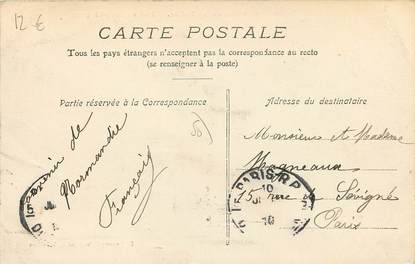 12 €
CARTE POSTALE
Tous les pays étrangers n'acceptent pas la correspondance au recto
(se renseigner à la poste)
Partie réservée à la Correspondance
Adresse du destinataire
Souvenir de
Normandie
François
50
Monsieur et Madame
Magneaux
15 rue Sévigné
Paris
PARIS R.P.
10